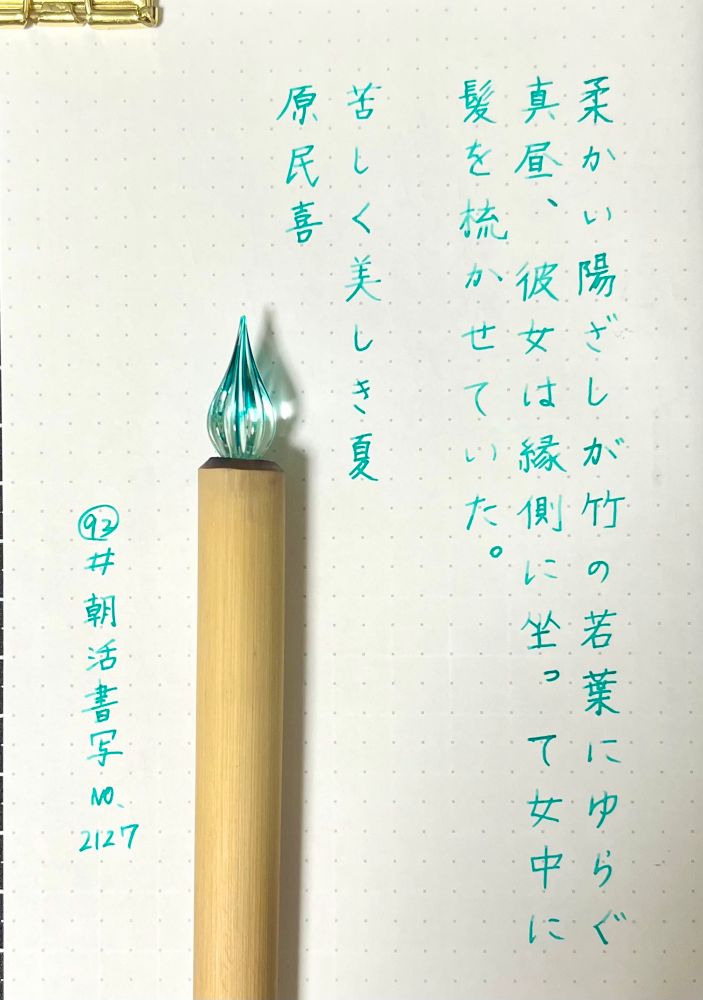 柔かい陽ざしが竹の若葉にゆらぐ
真昼、彼女は縁側に坐って女中に
髪を梳かせていた。
苦しく美しき夏
原民喜
㊾
#朝活書写
NO.
2127